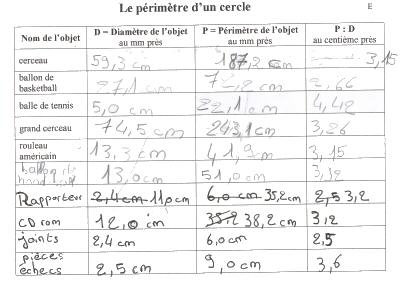 Le périmètre d'un cercle E
Nom de l'objet D = Diamètre de l'objet au mm près P = Périmètre de l'objet au mm près P : D au centième près
cerceau 59,3 cm 187,2 cm 3,15
ballon de basketball 27,1 cm 72,2 cm 2,66
balle de tennis 5,0 cm 22,1 cm 4,42
grand cerceau 74,5 cm 243,1 cm 3,26
rouleau américain 13,3 cm 41,9 cm 3,15
ballon de 13,0 cm 51,0 cm
Rapporteur 2,4 cm 11,0 cm 6,0 cm 35,2 cm 2,5 3,2
CD rom 12,0 cm 35,2 38,2 cm 3,2
joints 2,4 cm 6,0 cm 2,5
pièces échecs 2,5 cm 9,0 cm 3,6